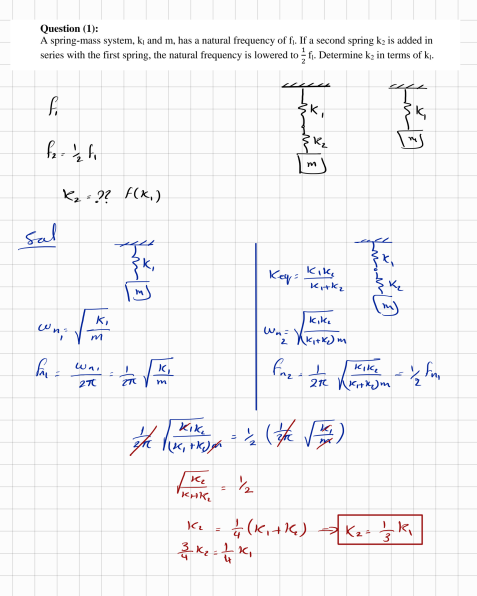 Question (1):
A spring-mass system, k₁ and m, has a natural frequency of f₁. If a second spring k₂ is added in
series with the first spring, the natural frequency is lowered to ½ f₁. Determine k₂ in terms of k₁.
f₁
f₂ = ½ f₁
K₂ = ?? f(K₁)
K₁
K₂
m
K₁
m
Sol
K₁
m
ωn₁ = √(K₁/m)
fn₁ = ωn₁/2π = 1/2π √(K₁/m)
Keq = K₁K₂/K₁+K₂
K₁
K₂
m
ωn₂ = √(K₁K₂/(K₁+K₂)m)
fn₂ = 1/2π √(K₁K₂/(K₁+K₂)m) = ½ fn₁
1/2π √(K₁K₂/(K₁+K₂)m) = ½ (1/2π √(K₁/m))
√(K₂/K₁+K₂) = ½
K₂ = ¼ (K₁+K₂) ⇒ K₂ = ⅓ K₁
¾ K₂ = ¼ K₁